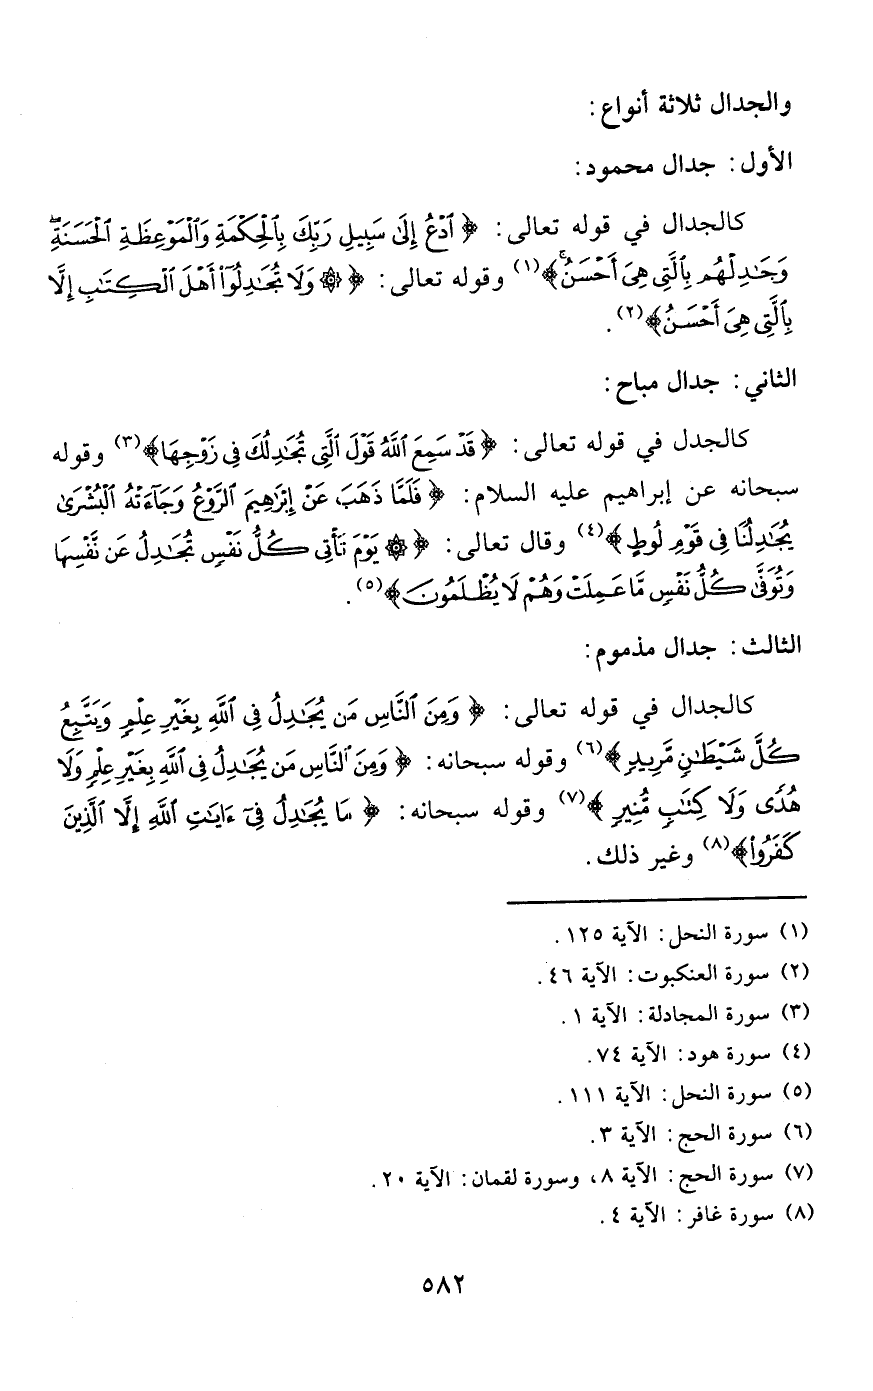 والجدال ثلاثة أنواع:
الأول: جدال محمود:
كالجدال في قوله تعالى: ﴿ ٱدْعُ إِلَىٰ سَبِيلِ رَبِّكَ بِٱلْحِكْمَةِ وَٱلْمَوْعِظَةِ ٱلْحَسَنَةِۖ
وَجَـٰدِلْهُم بِٱلَّتِى هِىَ أَحْسَنُۚ﴾(١) وقوله تعالى: ﴿ ۞ وَلَا تُجَـٰدِلُوٓا۟ أَهْلَ ٱلْكِتَـٰبِ إِلَّا
بِٱلَّتِى هِىَ أَحْسَنُ﴾(٢).
الثاني: جدال مباح:
كالجدل في قوله تعالى: ﴿ قَدْ سَمِعَ ٱللَّهُ قَوْلَ ٱلَّتِى تُجَـٰدِلُكَ فِى زَوْجِهَا﴾(٣) وقوله
سبحانه عن إبراهيم عليه السلام: ﴿ فَلَمَّا ذَهَبَ عَنْ إِبْرَٰهِيمَ ٱلرَّوْعُ وَجَآءَتْهُ ٱلْبُشْرَىٰ
يُجَـٰدِلُنَا فِى قَوْمِ لُوطٍ﴾(٤) وقال تعالى: ﴿ ۞ يَوْمَ تَأْتِى كُلُّ نَفْسٍ تُجَـٰدِلُ عَن نَّفْسِهَا
وَتُوَفَّىٰ كُلُّ نَفْسٍ مَّا عَمِلَتْ وَهُمْ لَا يُظْلَمُونَ﴾(٥).
الثالث: جدال مذموم:
كالجدال في قوله تعالى: ﴿ وَمِنَ ٱلنَّاسِ مَن يُجَـٰدِلُ فِى ٱللَّهِ بِغَيْرِ عِلْمٍ وَيَتَّبِعُ
كُلَّ شَيْطَـٰنٍ مَّرِيدٍ﴾(٦) وقوله سبحانه: ﴿ وَمِنَ ٱلنَّاسِ مَن يُجَـٰدِلُ فِى ٱللَّهِ بِغَيْرِ عِلْمٍ وَلَا
هُدًى وَلَا كِتَـٰبٍ مُّنِيرٍ ﴾(٧) وقوله سبحانه: ﴿ مَا يُجَـٰدِلُ فِىٓ ءَايَـٰتِ ٱللَّهِ إِلَّا ٱلَّذِينَ
كَفَرُوا۟﴾(٨) وغير ذلك.
(١) سورة النحل: الآية ١٢٥.
(٢) سورة العنكبوت: الآية ٤٦.
(٣) سورة المجادلة: الآية ١.
(٤) سورة هود: الآية ٧٤.
(٥) سورة النحل: الآية ١١١.
(٦) سورة الحج: الآية ٣.
(٧) سورة الحج: الآية ٨، وسورة لقمان: الآية ٢٠.
(٨) سورة غافر: الآية ٤.
٥٨٢